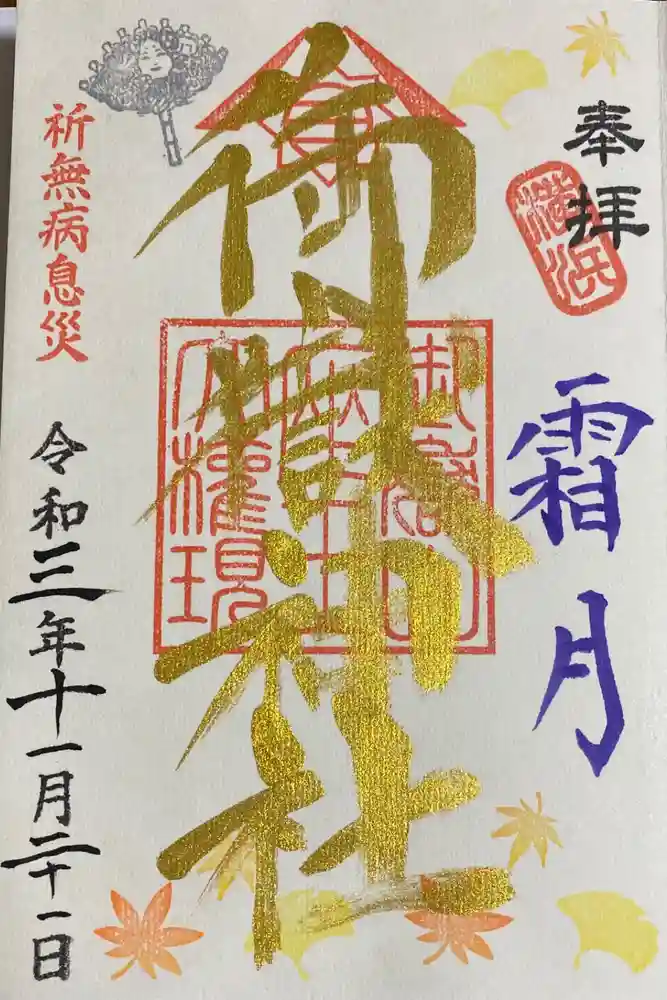 奉拝
霜月
御嶽神社
御嶽山
大權現
祈無病息災
令和三年十一月二十一日